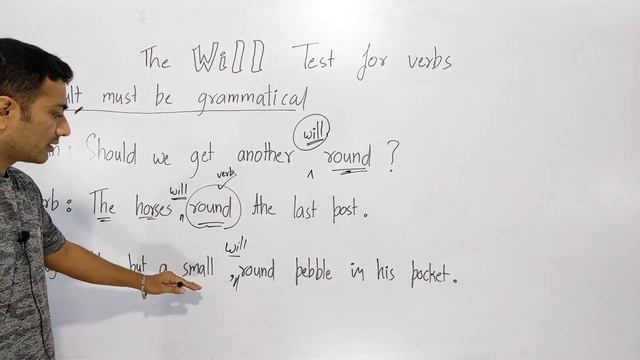 The Will Test for verbs
must be grammatical
will
Should we get another ^ round ?
verb
will
The horses ^ round the last post.
will
but a small ^ round pebble in his pocket.